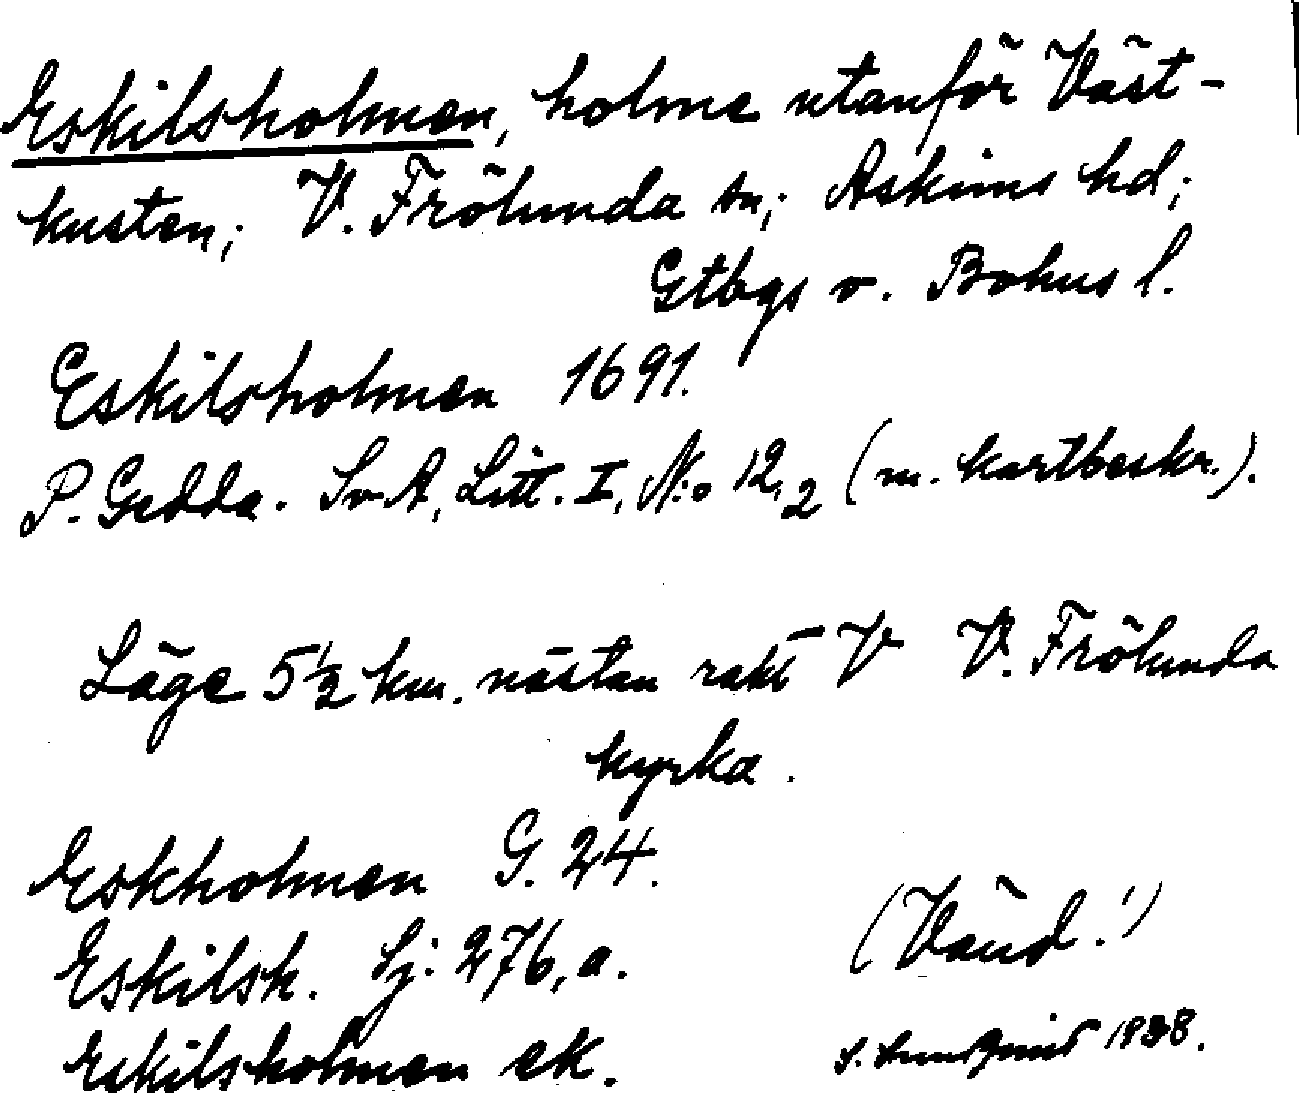 Eskilsholmen, holme utanför Väst-
kusten; V. Frölunda sn; Askims hd;
Gtbgs o. Bohus l.
Eskilsholmen 1691.
P. Gedda. Sv A, Litt. I, N:o 12,2 (m. kartbeskr.).
Läge 5 1/2 km. nästan rakt V V. Frölunda
kyrka.
Eskholmen G. 24.
Eskilsh. Sj: 276, a.
Eskilsholmen ek.
(Vänd!)
S.